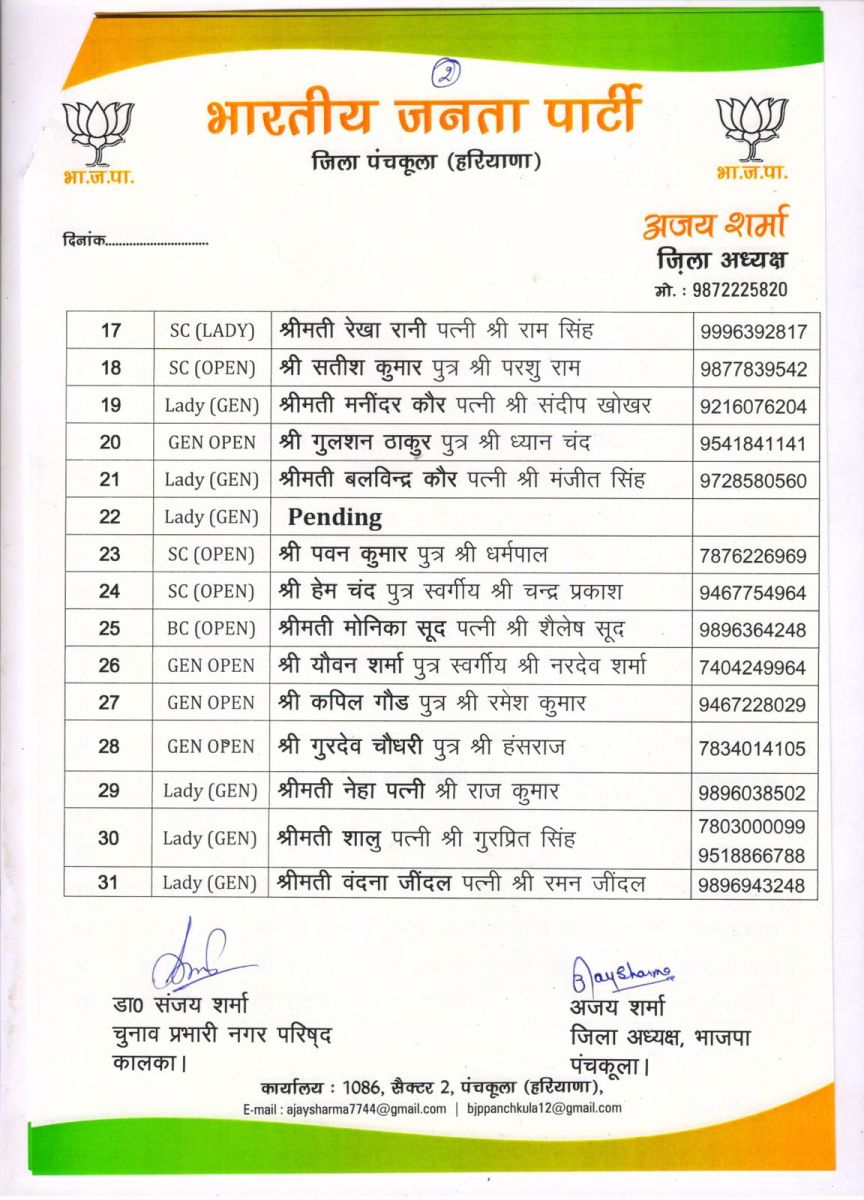 २
भारतीय जनता पार्टी
जिला पंचकूला (हरियाणा)
भा.ज.पा.
भा.ज.पा.
अजय शर्मा
दिनांक..............................
ज़िला अध्यक्ष
मो. : 9872225820
17 SC (LADY) श्रीमती रेखा रानी पत्नी श्री राम सिंह 9996392817
18 SC (OPEN) श्री सतीश कुमार पुत्र श्री परशु राम 9877839542
19 Lady (GEN) श्रीमती मनींदर कौर पत्नी श्री संदीप खोखर 9216076204
20 GEN OPEN श्री गुलशन ठाकुर पुत्र श्री ध्यान चंद 9541841141
21 Lady (GEN) श्रीमती बलविन्द्र कौर पत्नी श्री मंजीत सिंह 9728580560
22 Lady (GEN) Pending
23 SC (OPEN) श्री पवन कुमार पुत्र श्री धर्मपाल 7876226969
24 SC (OPEN) श्री हेम चंद पुत्र स्वर्गीय श्री चन्द्र प्रकाश 9467754964
25 BC (OPEN) श्रीमती मोनिका सूद पत्नी श्री शैलेष सूद 9896364248
26 GEN OPEN श्री यौवन शर्मा पुत्र स्वर्गीय श्री नरदेव शर्मा 7404249964
27 GEN OPEN श्री कपिल गौड पुत्र श्री रमेश कुमार 9467228029
28 GEN OPEN श्री गुरदेव चौधरी पुत्र श्री हंसराज 7834014105
29 Lady (GEN) श्रीमती नेहा पत्नी श्री राज कुमार 9896038502
30 Lady (GEN) श्रीमती शालु पत्नी श्री गुरप्रित सिंह 7803000099
9518866788
31 Lady (GEN) श्रीमती वंदना जींदल पत्नी श्री रमन जींदल 9896943248
AjaySharma
डा0 संजय शर्मा
चुनाव प्रभारी नगर परिष्द
कालका।
अजय शर्मा
जिला अध्यक्ष, भाजपा
पंचकूला।
कार्यालय : 1086, सैक्टर 2, पंचकूला (हरियाणा),
E-mail : ajaysharma7744@gmail.com | bjppanchkula12@gmail.com